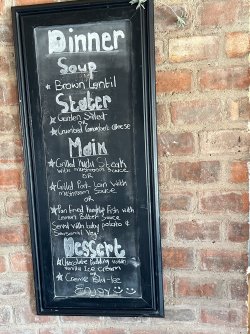 Dinner
Soup
Brown Lentil
Stater
Garden Salled
or
Crumbed Camembert cheese
Main
Grilled Steak
with mushroom sauce
OR
Grilled Pork Loin with
mushroom Sauce
OR
Pan Fried Fish with
Lemon Butter Sauce
Serve with baby potato &
Seasonal Veg
Dessert
Chocolate Pudding with
Vanilla Ice Cream
Creme
Enjoy